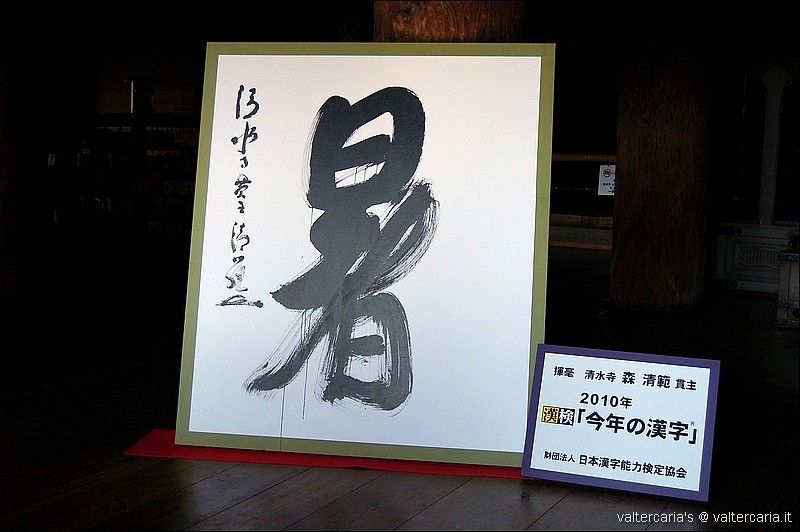 暑
清水寺貫主清範
揮毫 清水寺 森 清範 貫主
2010年
漢検「今年の漢字」®
財団法人 日本漢字能力検定協会
valtercaria's @ valtercaria.it